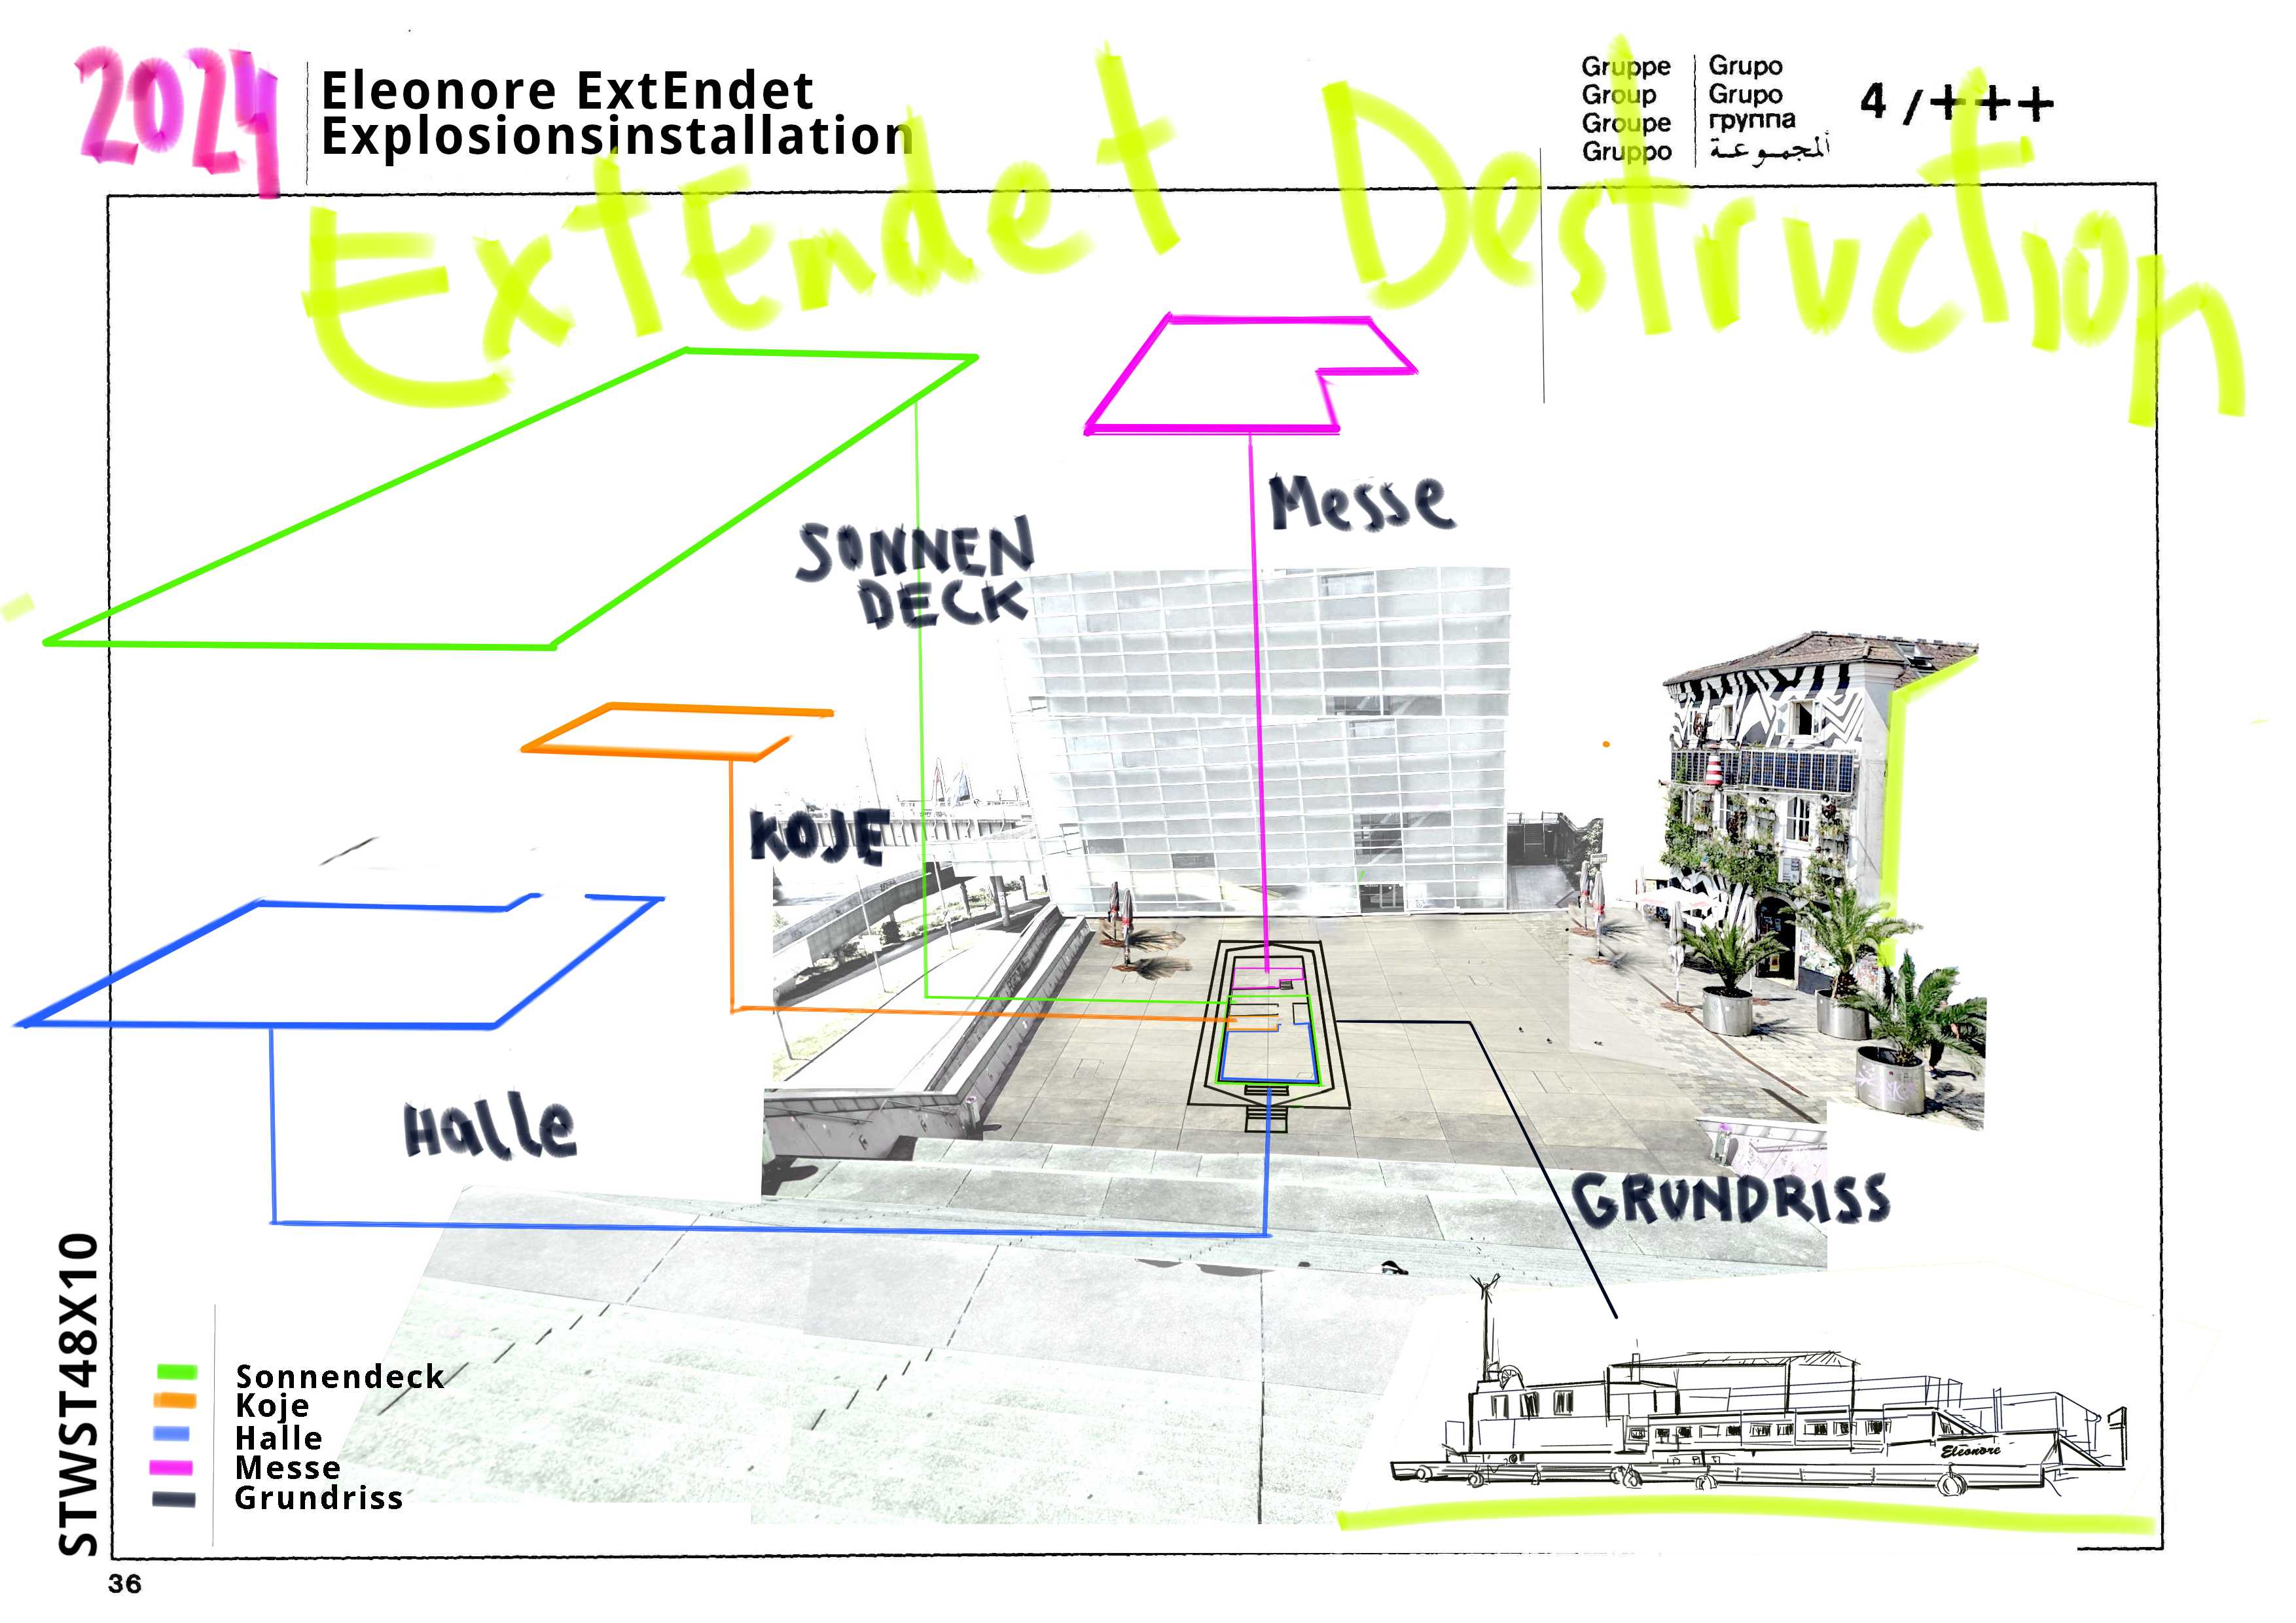 2024
Eleonore ExtEndet
Explosionsinstallation
Gruppe
Group
Groupe
Gruppo
Grupo
Grupo
группа
ألمجموعة
4 /+++
ExtEndet Destruction
Messe
SONNEN
DECK
KOJE
Halle
GRUNDRISS
Eleonore
STWST48X10
Sonnendeck
Koje
Halle
Messe
Grundriss
36